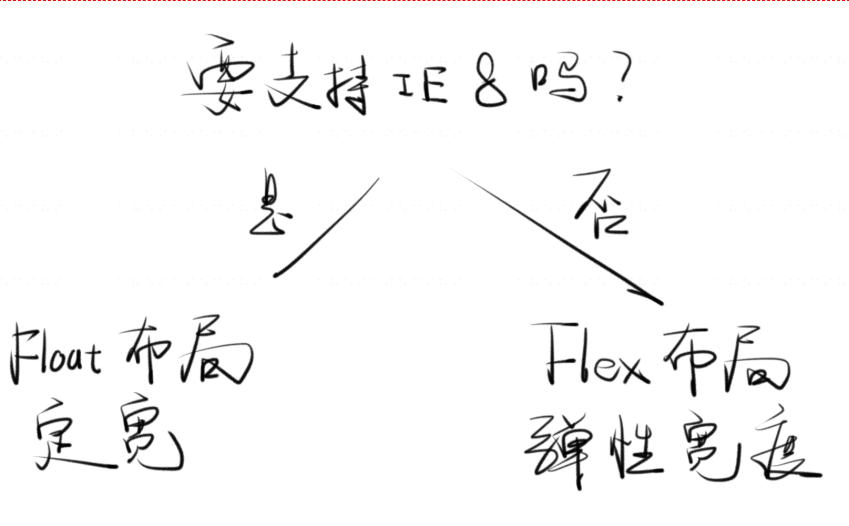 要支持IE8吗?
是
否
Float布局
定宽
Flex布局
弹性宽度